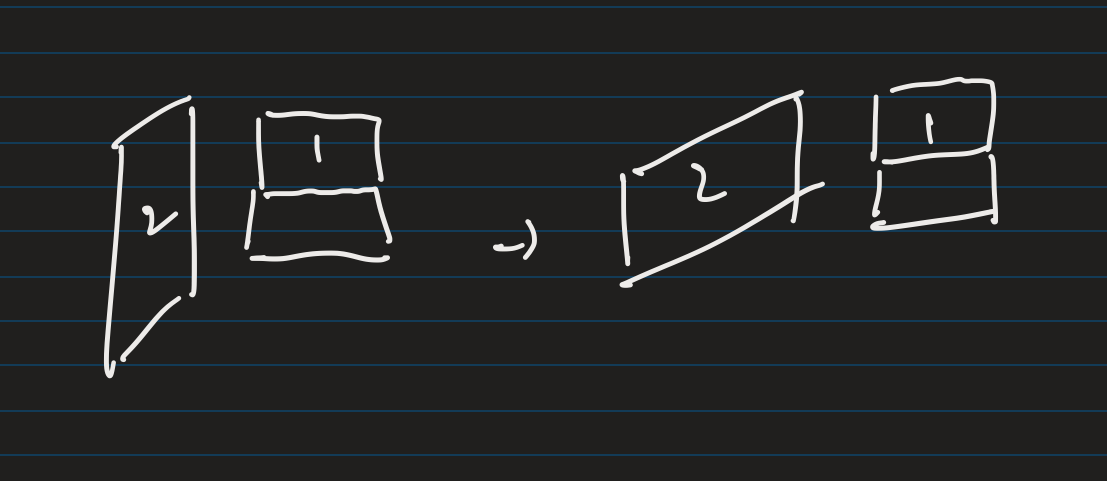 2 1 → 2 1